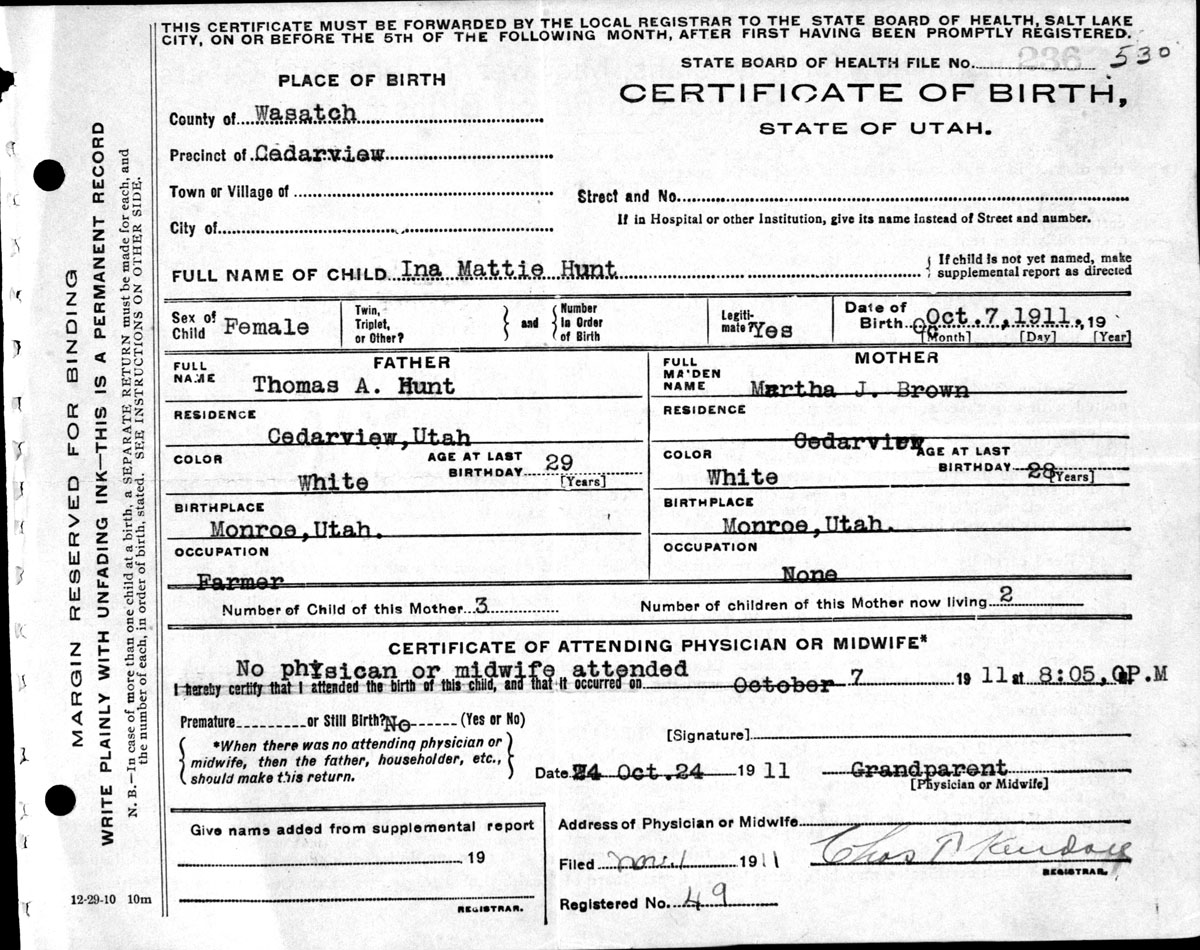 THIS CERTIFICATE MUST BE FORWARDED BY THE LOCAL REGISTRAR TO THE STATE BOARD OF HEALTH, SALT LAKE
CITY, ON OR BEFORE THE 5TH OF THE FOLLOWING MONTH, AFTER FIRST HAVING BEEN PROMPTLY REGISTERED.
236
STATE BOARD OF HEALTH FILE No. 530
PLACE OF BIRTH
CERTIFICATE OF BIRTH,
STATE OF UTAH.
County of Wasatch
Precinct of Cedarview
Town or Village of
Street and No.
If in Hospital or other Institution, give its name instead of Street and number.
City of
FULL NAME OF CHILD Ina Mattie Hunt
{ If child is not yet named, make
supplemental report as directed
Sex of
Child Female
Twin,
Triplet,
or Other?
} and {
Number
in Order
of Birth
Legiti-
mate? Yes
Date of
Birth Oct. 7, 1911., 19
[Month] [Day] [Year]
FATHER
FULL
NAME
Thomas A. Hunt
MOTHER
FULL
MAIDEN
NAME
Martha J. Brown
RESIDENCE
Cedarview, Utah
RESIDENCE
Cedarview
COLOR
White
AGE AT LAST
BIRTHDAY 29
[Years]
COLOR
White
AGE AT LAST
BIRTHDAY 28
[Years]
BIRTHPLACE
Monroe, Utah.
BIRTHPLACE
Monroe, Utah.
OCCUPATION
Farmer
OCCUPATION
None
Number of Child of this Mother 3
Number of children of this Mother now living 2
CERTIFICATE OF ATTENDING PHYSICIAN OR MIDWIFE*
No phisican or midwife attended
I hereby certify that I attended the birth of this child, and that it occurred on October 7 1911 at 8:05, P.M
Premature or Still Birth? No (Yes or No)
{ *When there was no attending physician or
midwife, then the father, householder, etc.,
should make this return. }
[Signature]
Date 24 Oct. 24 1911
Grandparent
[Physician or Midwife]
Give name added from supplemental report
19
REGISTRAR.
Address of Physician or Midwife
Filed Nov. 1 1911
Chas
REGISTRAR.
Registered No. 49
12-29-10 10m
MARGIN RESERVED FOR BINDING
WRITE PLAINLY WITH UNFADING INK—THIS IS A PERMANENT RECORD
N. B.—In case of more than one child at a birth, a SEPARATE RETURN must be made for each, and
the number of each, in order of birth, stated. SEE INSTRUCTIONS ON OTHER SIDE.